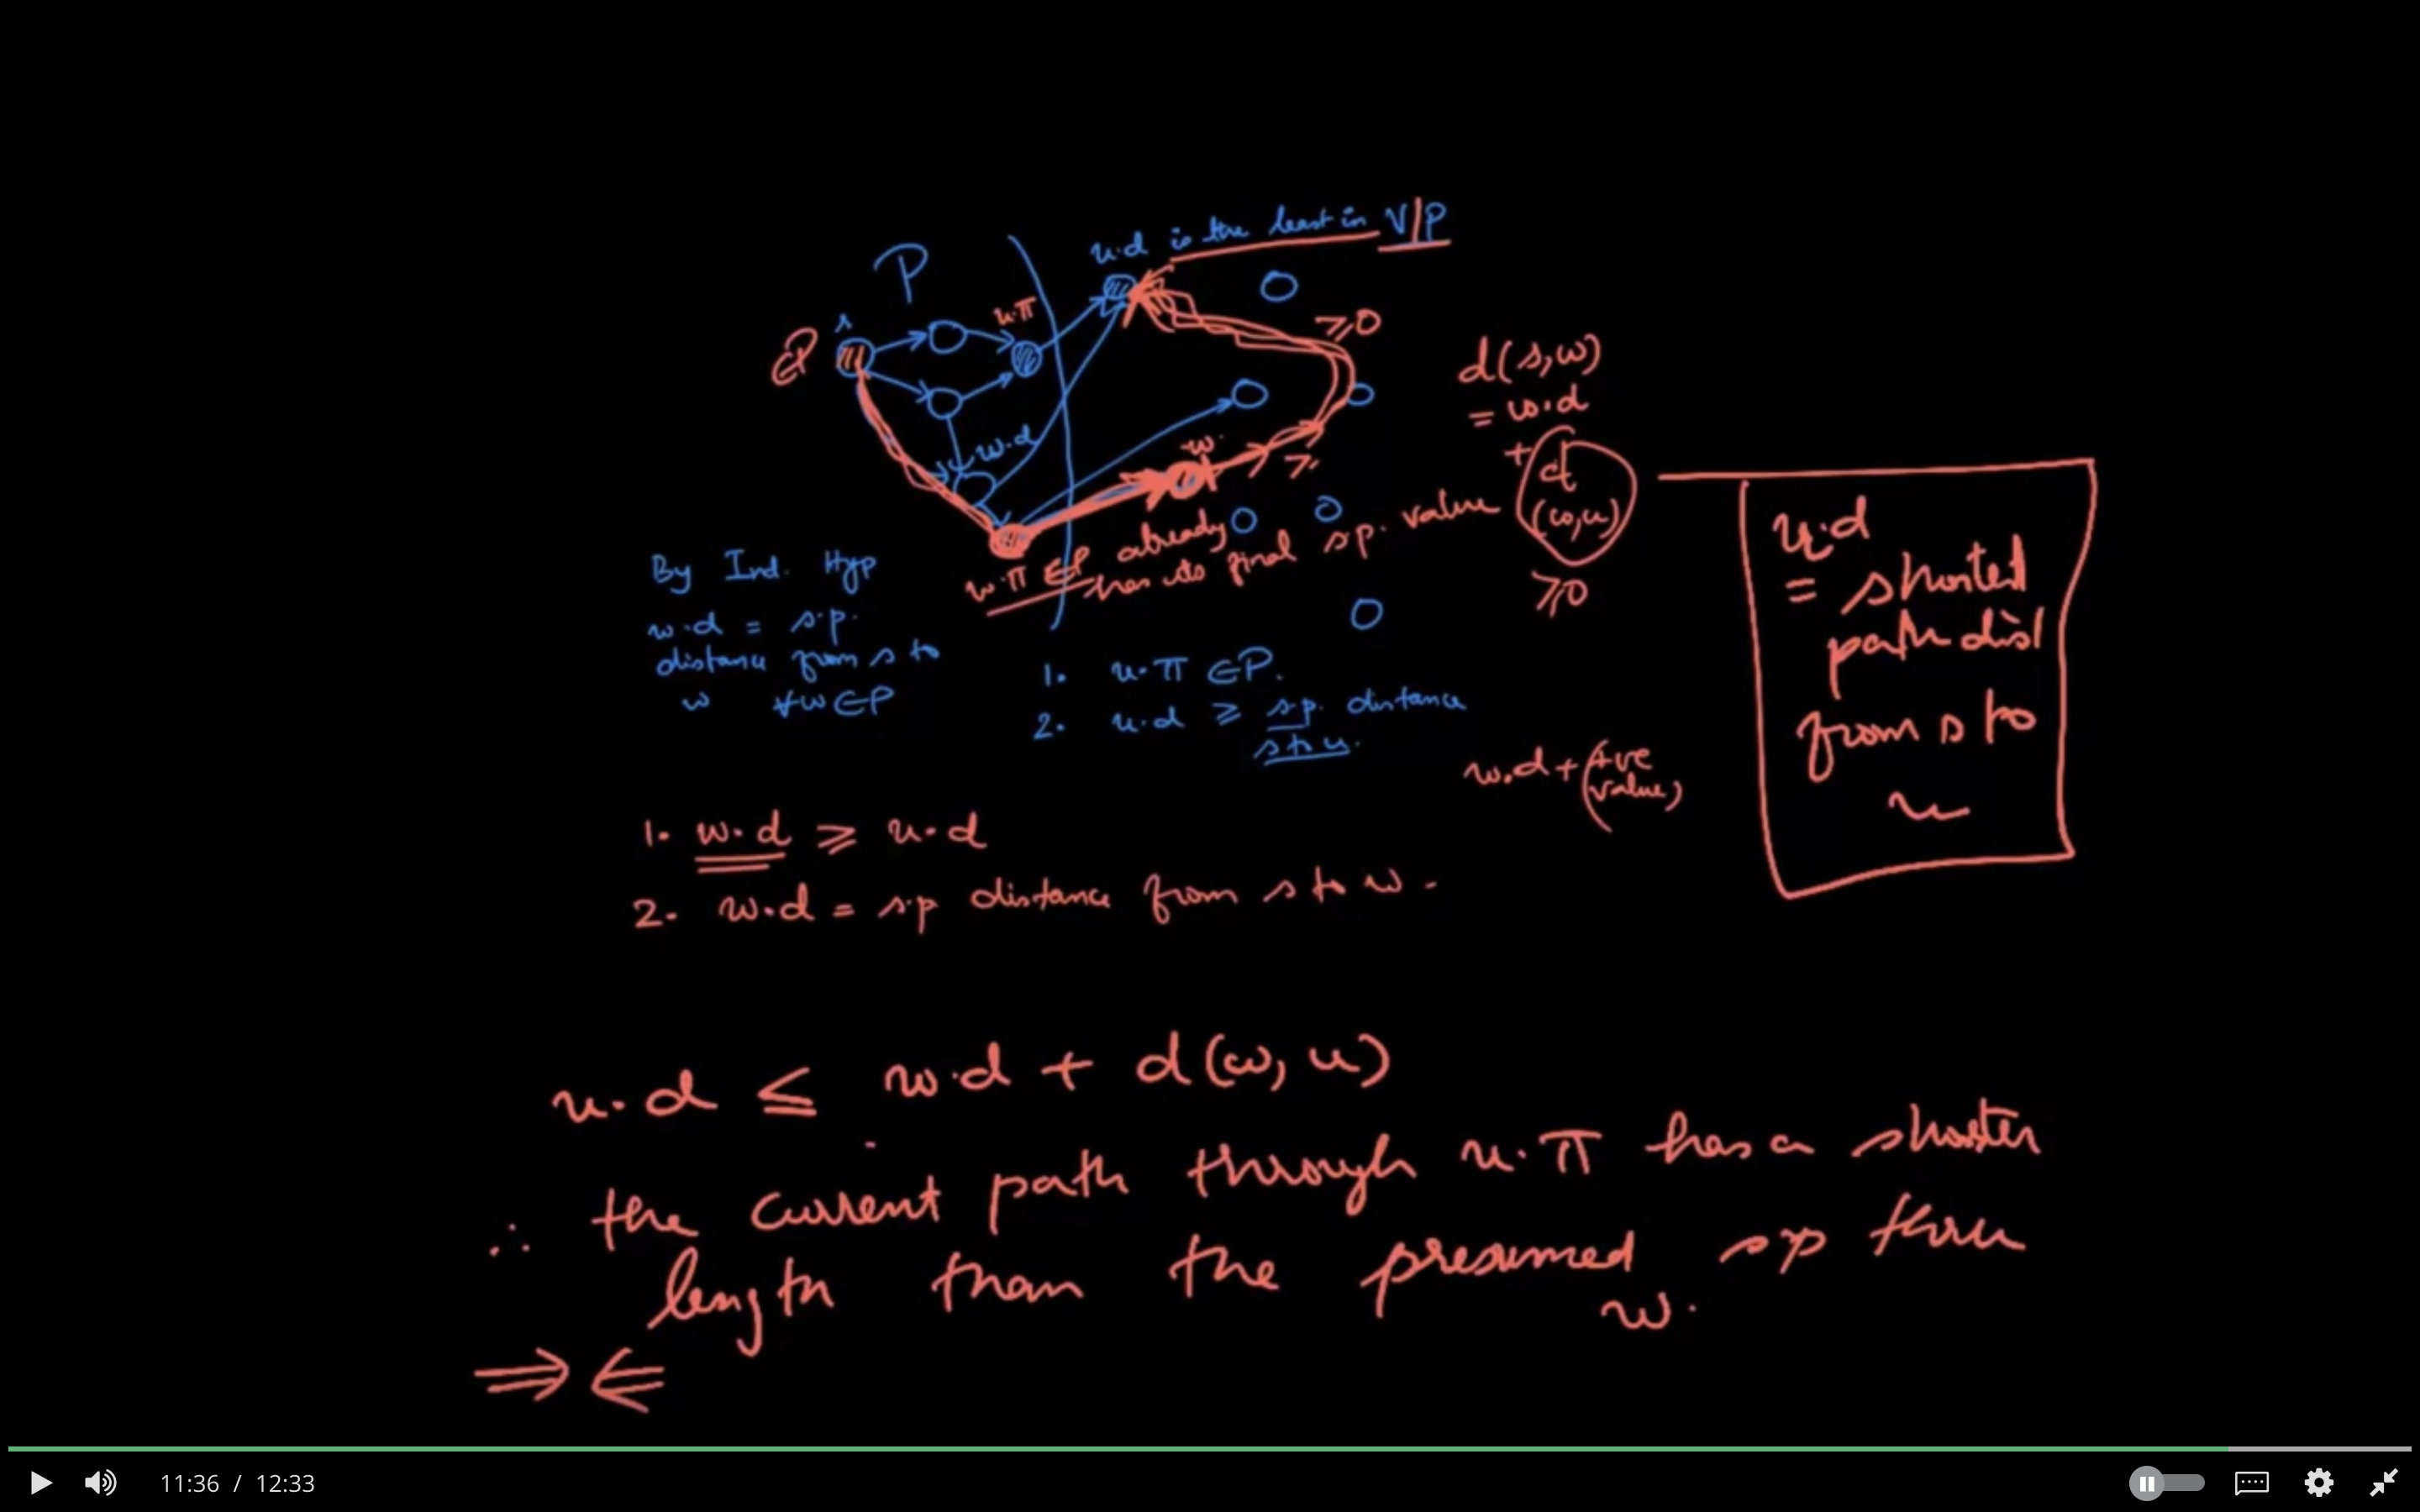 u.d is the least in V|P
P
s
u.π
∈P
≥0
d(s,w)
= w.d
+ d
(w,u)
≥0
w.d
w.
≥
w.π ∈P already
has its final s.p. value
By Ind. Hyp
w.d = s.p.
distance from s to
w ∀w∈P
1. u.π ∈P.
2. u.d ≥ s.p. distance
s to u.
u.d
= shortest
path dist
from s to
u
w.d + (+ve
value)
1. w.d ≥ u.d
2. w.d = s.p distance from s to w.
u.d ≤ w.d + d(w,u)
∴ the current path through u.π has a shorter
length than the presumed sp thru
w.
⇒⇐
11:36 / 12:33